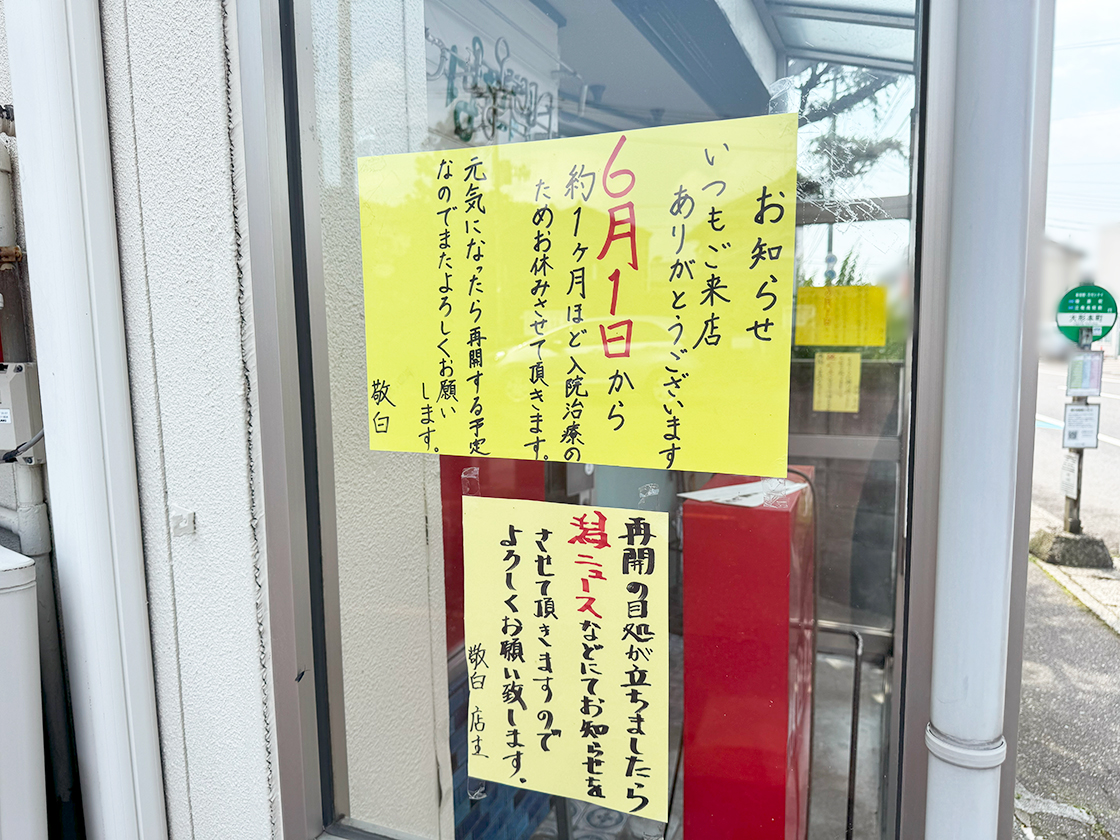 お知らせ
いつもご来店
ありがとうございます
6月1日から
約1ヶ月ほど入院治療の
ためお休みさせて頂きます。
元気になったら再開する予定
なのでまたよろしくお願い
します。
敬白
再開の目処が立ちましたら
潟ニュースなどにてお知らせを
させて頂きますので
よろしくお願い致します.
敬白 店主
大形本町